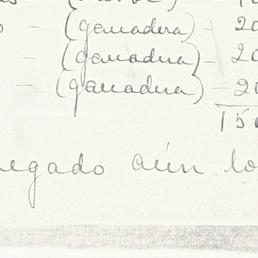 - (ganadera) - 20
- (ganadera) - 20
- (ganadera) - 20
150
egado aún lo